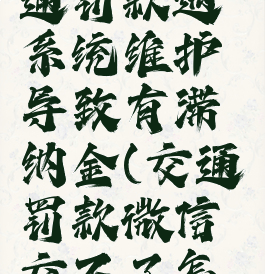 通罚款遇
系统维护
导致有滞
纳金(交通
罚款微信
交不了怎